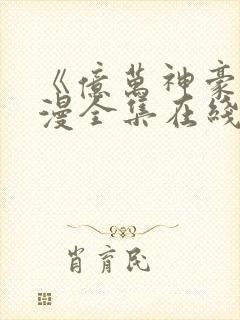 《億萬神豪
漫全集在綫
肖育民